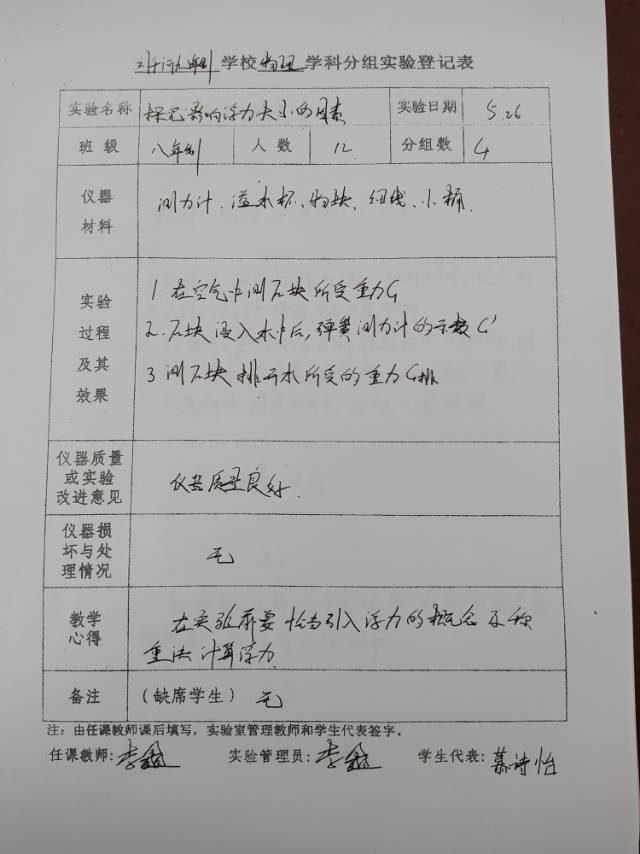 学校物理学科分组实验登记表
实验名称 探究影响浮力大小的因素 实验日期 5.26
班级 八年级 人数 12 分组数 4
仪器材料 测力计、溢水杯、物块、细线、小桶.
实验过程及其效果
1. 在空气中测石块所受重力G
2. 石块浸入水中后,弹簧测力计的示数G'
3. 测石块排开水所受的重力G排
仪器质量或实验改进意见 仪器质量良好.
仪器损坏与处理情况 无
教学心得 在实验前要恰当引入浮力的概念及称
重法计算浮力
备注 (缺席学生) 无
注:由任课教师课后填写,实验室管理教师和学生代表签字。
任课教师:李鑫 实验管理员:李鑫 学生代表:慕诗怡